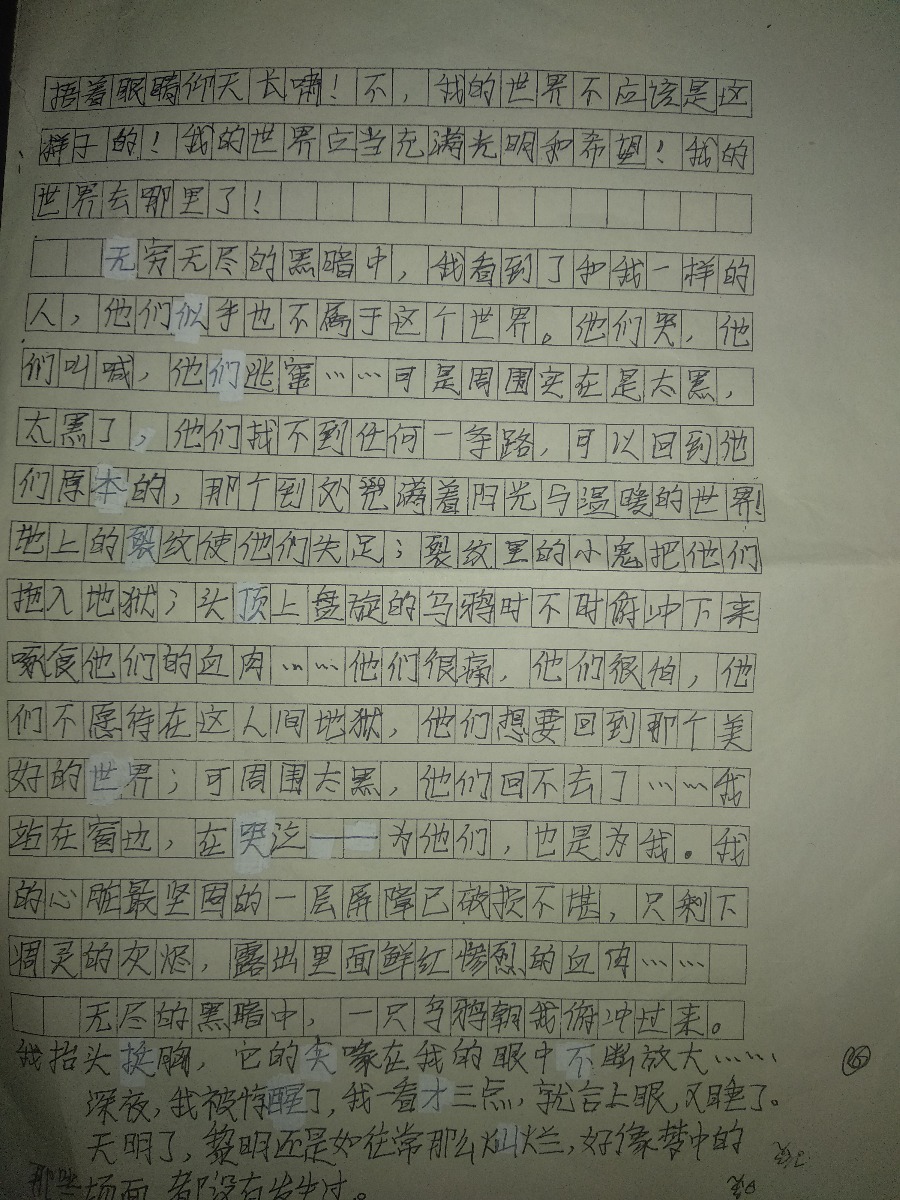 捂着眼睛仰天长啸！不，我的世界不应该是这
样子的！我的世界应当充满光明和希望！我的
世界去那里了！
无穷无尽的黑暗中，我看到了和我一样的
人，他们似乎也不属于这个世界。他们哭，他
们叫喊，他们逃窜……可是周围实在是太黑，
太黑了，他们找不到任何一条路，可以回到他
们原本的，那个到处充满着阳光与温暖的世界！
地上的裂纹使他们失足；裂纹里的小鬼把他们
拖入地狱；头顶上盘旋的乌鸦时不时俯冲下来
啄食他们的血肉……他们很痛，他们很怕，他
们不愿待在这人间地狱，他们想要回到那个美
好的世界；可周围太黑，他们回不去了……我
站在窗边，在哭泣——为他们，也是为我。我
的心脏最坚固的一层屏障已破损不堪，只剩下
凋灵的灰烬，露出里面鲜红惨烈的血肉……
无尽的黑暗中，一只乌鸦朝我俯冲过来。
我抬头挺胸，它的尖喙在我的眼中不断放大……
深夜，我被惊醒了，我一看才三点，就合上眼，又睡了。
天明了，黎明还是如往常那么灿烂，好像梦中的
那些场面，都没有发生过。